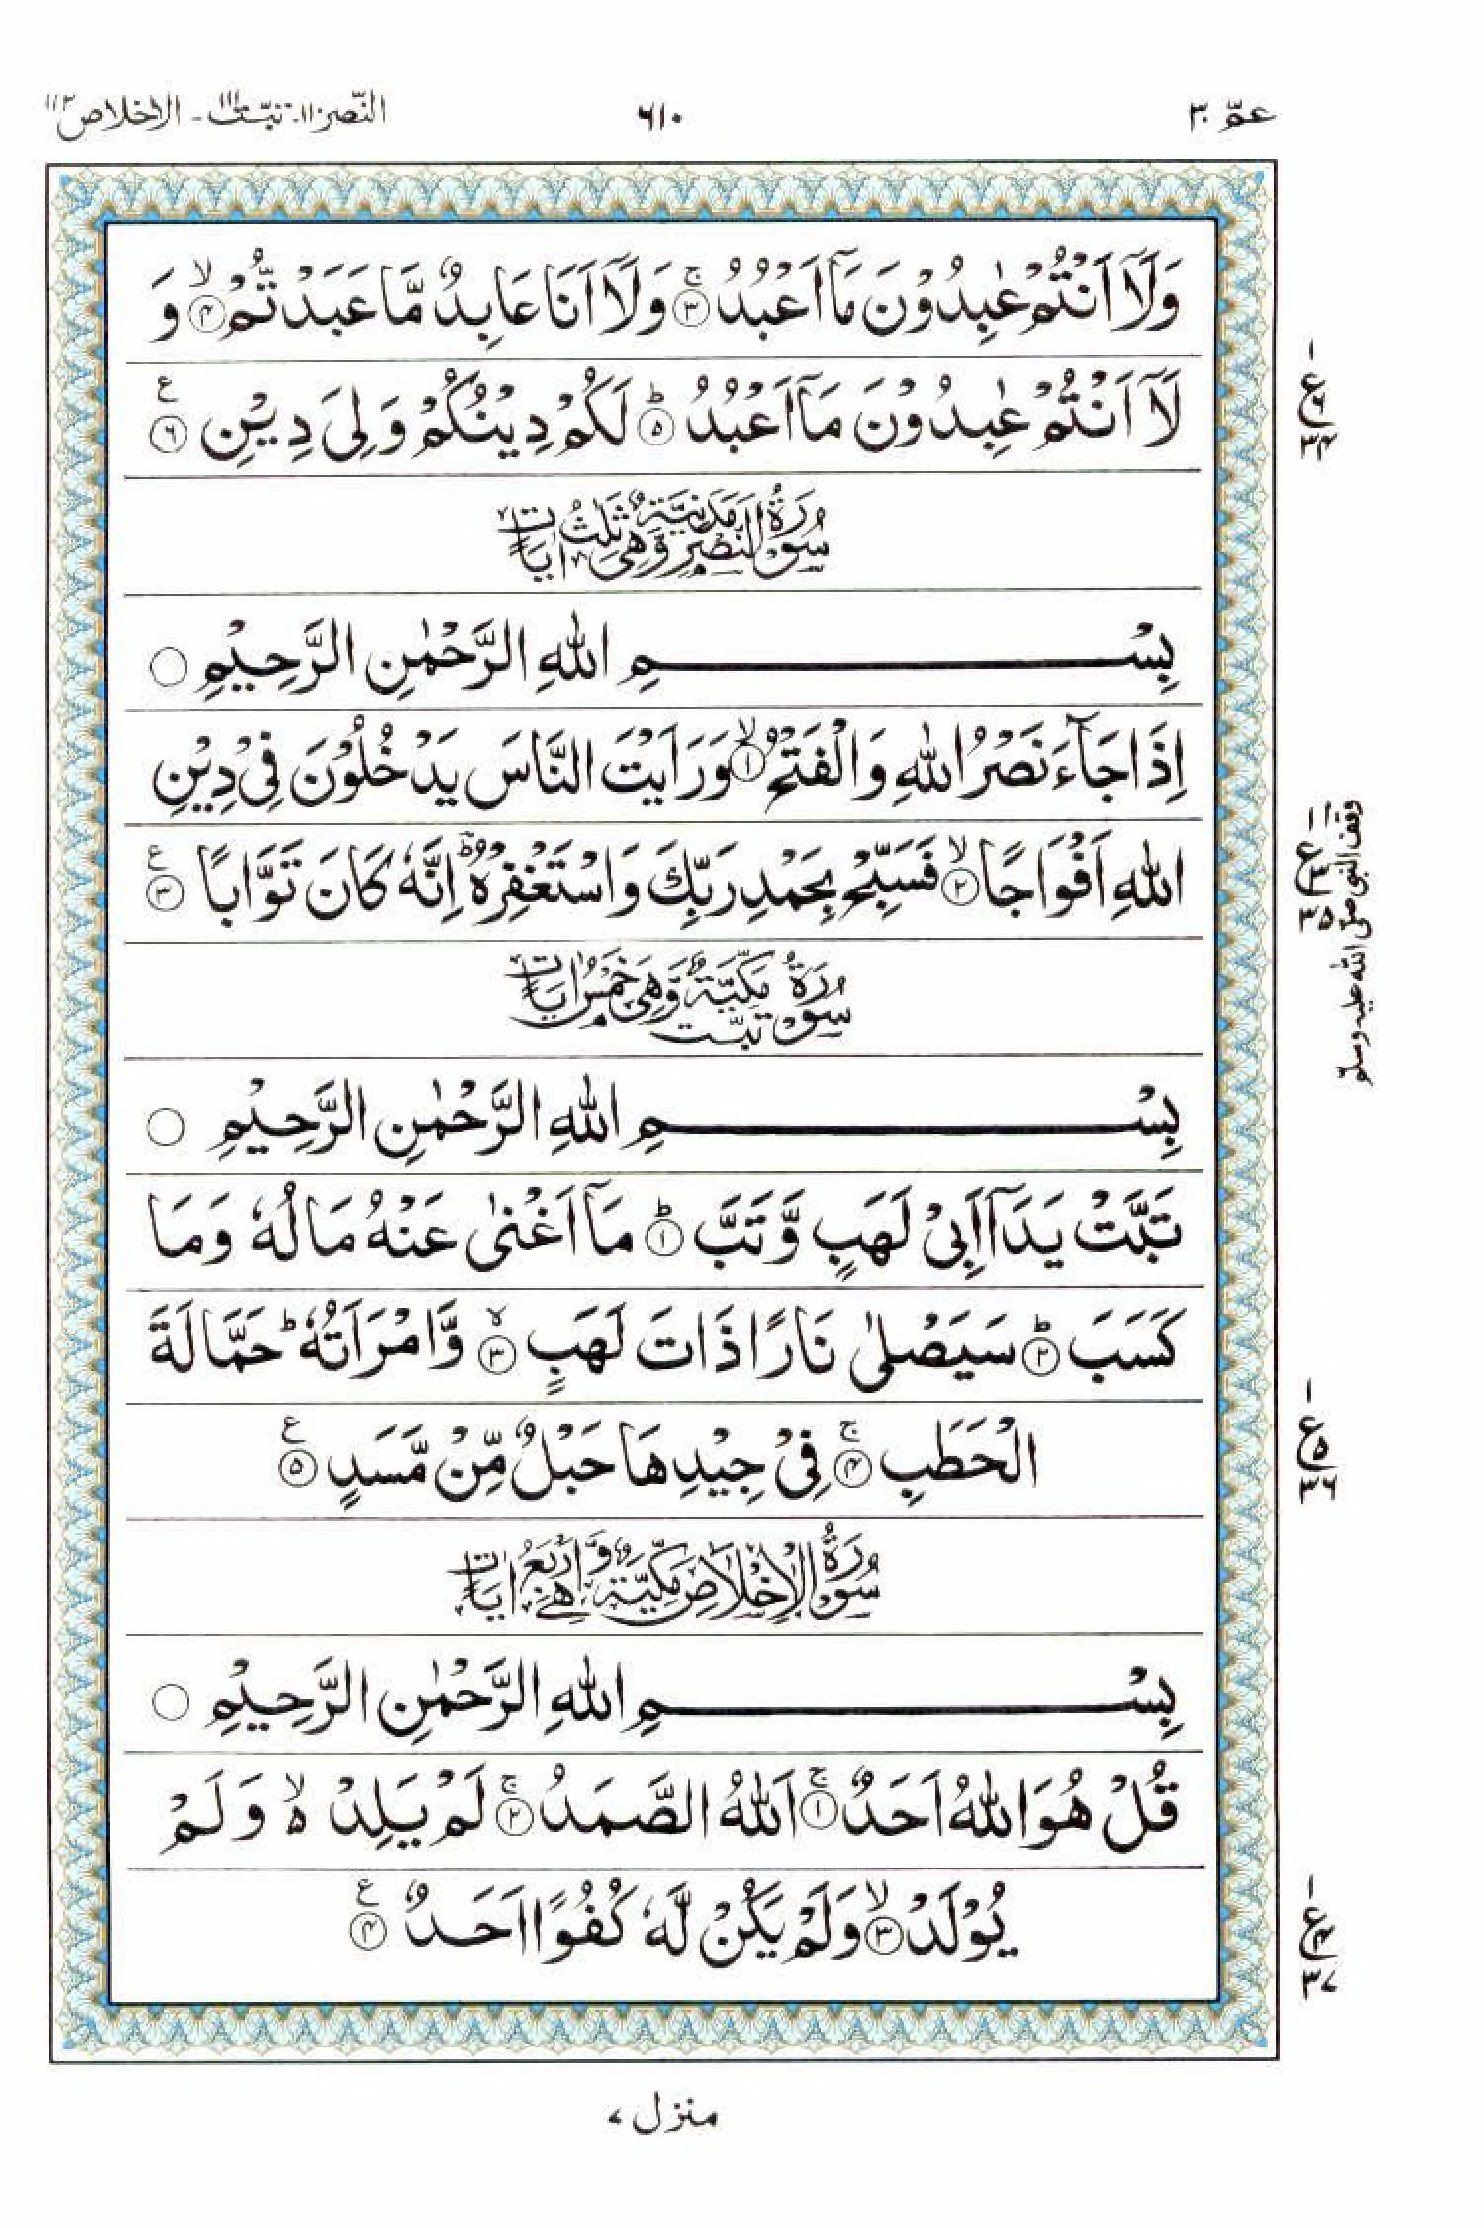 عمّ ٣٠
٦١٠
النّصر ١١٠ - تبّت ١١١ - الاخلاص ١١٢
وَلَاۤ اَنْتُمْ عٰبِدُوْنَ مَاۤ اَعْبُدُ ۚ ﴿٣﴾ وَلَاۤ اَنَا عَابِدٌ مَّا عَبَدْتُّمْ ۙ ﴿٤﴾ وَ
لَاۤ اَنْتُمْ عٰبِدُوْنَ مَاۤ اَعْبُدُ ؕ ﴿٥﴾ لَكُمْ دِيْنُكُمْ وَلِىَ دِيْنِ ﴿٦﴾ ع
سُوْرَةُ النَّصْرِ مَدَنِيَّةٌ وَّهِىَ ثَلٰثُ اٰيَاتٍ
بِسْمِ اللّٰهِ الرَّحْمٰنِ الرَّحِيْمِ ○
اِذَا جَآءَ نَصْرُ اللّٰهِ وَالْفَتْحُ ۙ ﴿١﴾ وَرَاَيْتَ النَّاسَ يَدْخُلُوْنَ فِىْ دِيْنِ
اللّٰهِ اَفْوَاجًا ۙ ﴿٢﴾ فَسَبِّحْ بِحَمْدِ رَبِّكَ وَاسْتَغْفِرْهُ ؕ اِنَّهٗ كَانَ تَوَّابًا ﴿٣﴾ ع
سُوْرَةُ تَبَّتْ مَكِّيَّةٌ وَّهِىَ خَمْسُ اٰيَاتٍ
بِسْمِ اللّٰهِ الرَّحْمٰنِ الرَّحِيْمِ ○
تَبَّتْ يَدَاۤ اَبِىْ لَهَبٍ وَّتَبَّ ؕ ﴿١﴾ مَاۤ اَغْنٰى عَنْهُ مَالُهٗ وَمَا
كَسَبَ ؕ ﴿٢﴾ سَيَصْلٰى نَارًا ذَاتَ لَهَبٍ ۙ ﴿٣﴾ وَّامْرَاَتُهٗ ؕ حَمَّالَةَ
الْحَطَبِ ۚ ﴿٤﴾ فِىْ جِيْدِهَا حَبْلٌ مِّنْ مَّسَدٍ ﴿٥﴾ ع
سُوْرَةُ الْاِخْلَاصِ مَكِّيَّةٌ وَّهِىَ اَرْبَعُ اٰيَاتٍ
بِسْمِ اللّٰهِ الرَّحْمٰنِ الرَّحِيْمِ ○
قُلْ هُوَ اللّٰهُ اَحَدٌ ۚ ﴿١﴾ اَللّٰهُ الصَّمَدُ ۚ ﴿٢﴾ لَمْ يَلِدْ ۙ٥ وَلَمْ
يُوْلَدْ ۙ ﴿٣﴾ وَلَمْ يَكُنْ لَّهٗ كُفُوًا اَحَدٌ ﴿٤﴾ ع
١ ع ٦ ٣٤
١ ع ٣ ٣٥
وقف النبى صلى الله عليه وسلم
١ ع ٥ ٣٦
١ ع ٤ ٣٧
منزل ٧